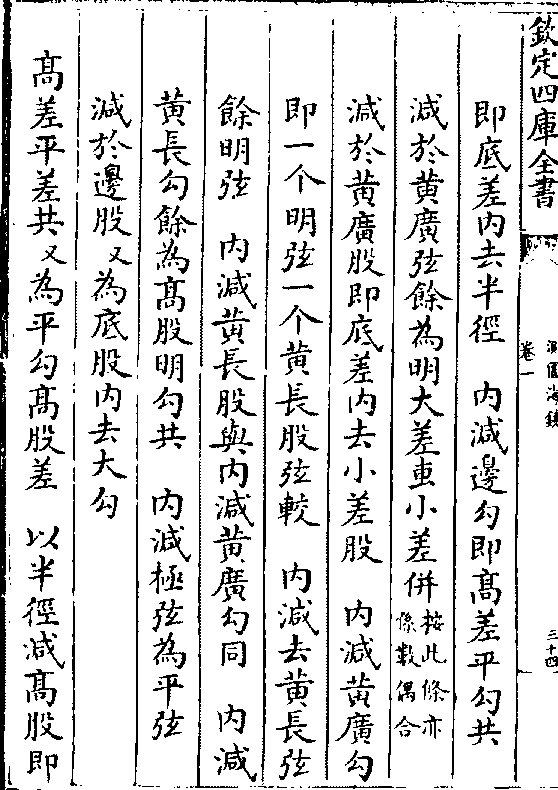 欽定四庫全書
測圓海鏡
卷一
三十四
即底差内去半徑　内減邊勾即髙差平勾共
減於黄廣弦餘為明大差叀小差併按此條亦係數偶合
減於黄廣股即底差内去小差股　内減黄廣勾
即一个明弦一个黄長股弦較　内減去黄長弦
餘明弦　内減黄長股與内減黄廣勾同　内減
黄長勾餘為髙股明勾共　内減極弦為平弦
減於邊股又為底股内去大勾
髙差平差共又為平勾髙股差　以半徑減髙股即